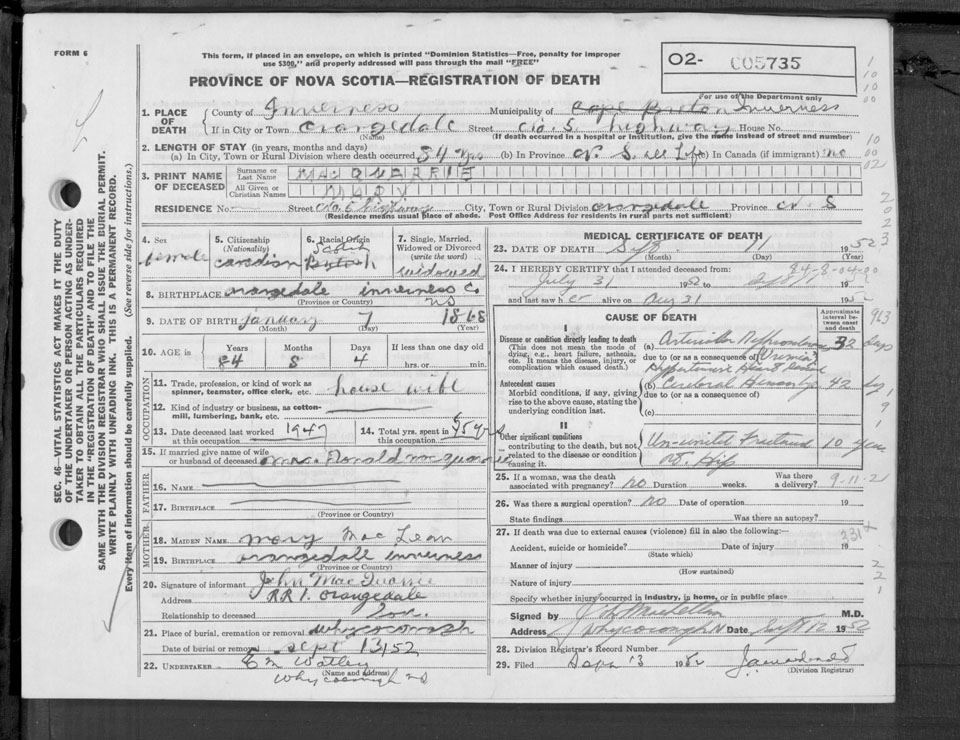 FORM 6
This form, if placed in an envelope, on which is printed "Dominion Statistics—Free, penalty for improper
use $300," and properly addressed will pass through the mail "FREE"
PROVINCE OF NOVA SCOTIA—REGISTRATION OF DEATH
O2- 005735
For use of the Department only
SEC. 46—VITAL STATISTICS ACT MAKES IT THE DUTY
OF THE UNDERTAKER OR PERSON ACTING AS UNDER-
TAKER TO OBTAIN ALL THE PARTICULARS REQUIRED
IN THE "REGISTRATION OF DEATH" AND TO FILE THE
SAME WITH THE DIVISION REGISTRAR WHO SHALL ISSUE THE BURIAL PERMIT.
WRITE PLAINLY WITH UNFADING INK. THIS IS A PERMANENT RECORD.
Every item of information should be carefully supplied. (See reverse side for instructions.)
1. PLACE OF DEATH County of Inverness Municipality of Cape Breton Inverness
If in City or Town Orangedale Street No. 5 highway House No.
(Name) (If death occurred in a hospital or institution, give the name instead of street and number)
2. LENGTH OF STAY (in years, months and days)
(a) In City, Town or Rural Division where death occurred 84 yrs (b) In Province N. S. all Life (c) In Canada (if immigrant) no
3. PRINT NAME OF DECEASED Surname or Last Name MACQUARRIE
All Given or Christian Names MARY
RESIDENCE No. Street No. 5 highway City, Town or Rural Division Orangedale Province N. S
(Residence means usual place of abode. Post Office Address for residents in rural parts not sufficient)
4. Sex female
5. Citizenship (Nationality) Canadian
6. Racial Origin Scotch
7. Single, Married, Widowed or Divorced (write the word) widowed
8. BIRTHPLACE Orangedale Inverness Co NS
(Province or Country)
9. DATE OF BIRTH January 7 1868
(Month) (Day) (Year)
10. AGE in 84 8 4 If less than one day old
hrs. or min.
OCCUPATION
11. Trade, profession, or kind of work as spinner, teamster, office clerk, etc. house wife
12. Kind of industry or business, as cotton-mill, lumbering, bank, etc.
13. Date deceased last worked at this occupation 1947
14. Total yrs. spent in this occupation 55 yrs
15. If married give name of wife or husband of deceased Mrs. Donald MacQuarrie
FATHER
16. NAME
17. BIRTHPLACE
(Province or Country)
MOTHER
18. MAIDEN NAME Mary Mac Lean
19. BIRTHPLACE Orangedale Inverness
(Province or Country)
20. Signature of informant John MacQuarrie
Address RR 1. Orangedale
Relationship to deceased Son.
21. Place of burial, cremation or removal Whycocomagh
Date of burial or removal Sept 13/52
22. UNDERTAKER E M Watley
(Name and Address)
Whycocomagh NS
MEDICAL CERTIFICATE OF DEATH
23. DATE OF DEATH Sept. 11 1952
(Month) (Day) (Year)
84-8-04-00
24. I HEREBY CERTIFY that I attended deceased from:
July 31 1952 to Sept 11 195
and last saw her alive on Aug 31 195
CAUSE OF DEATH
Approximate interval between onset and death
I
Disease or condition directly leading to death
(This does not mean the mode of dying, e.g., heart failure, asthenia, etc. It means the disease, injury, or complication which caused death.)
(a) Arteriolar Nephrosclerosis 32 days
due to (or as a consequence of) Uremia
Hypertensive Heart
Antecedent causes
Morbid conditions, if any, giving rise to the above cause, stating the underlying condition last.
(b) Cerebral 42
due to (or as a consequence of)
(c)
II
Other significant conditions contributing to the death, but not related to the disease or condition causing it.
Un-united Fractured 10 year
Rt. Hip
25. If a woman, was the death associated with pregnancy? no Duration weeks. Was there a delivery? 9-11-2
26. Was there a surgical operation? no Date of operation 19
State findings Was there an autopsy?
27. If death was due to external causes (violence) fill in also the following:—
Accident, suicide or homicide? Date of injury 19
(State which)
Manner of injury
(How sustained)
Nature of injury
Specify whether injury occurred in industry, in home, or in public place
Signed by M.D.
Address Whycocomagh N Date Sept 12 1952
28. Division Registrar's Record Number
29. Filed Sept 13 1952
(Division Registrar)